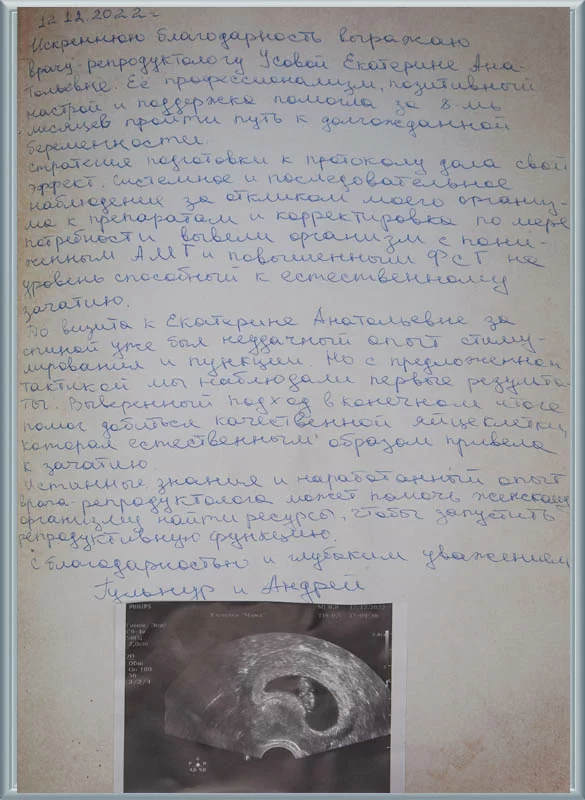 12.12.2022 г
Искреннюю благодарность выражаю
врачу-репродуктологу Усовой Екатерине Ана-
тольевне. Её профессионализм, позитивный
настрой и поддержка помогла за 8-мь
месяцев пройти путь к долгожданной
беременности.
стратегия подготовки к протоколу дала свой
эффект. Системное и последовательное
наблюдение за откликом моего организ-
ма к препаратам и корректировка по мере
потребности вывели организм с пони-
женным АМГ и повышенным ФСГ на
уровень способный к естественному
зачатию.
До визита к Екатерине Анатольевне за
спиной уже был неудачный опыт стиму-
лирования и пункции. Но с предложенной
тактикой мы наблюдали первые результа-
ты. Выверенный подход в конечном итоге
помог добиться качественной яйцеклетки,
которая естественным образом привела
к зачатию.
Истинные знания и наработанный опыт
врача-репродуктолога может помочь женскому
организму найти ресурсы, чтобы запустить
репродуктивную функцию.
С благодарностью и глубоким уважением
Гульнур и Андрей
PHILIPS
Клиника "Мама"
MI 0.8 12.12.2022
Гинек, Энд
C9-4v
54Гц
7,0cm
2D
Общ
Оп 100
56
3/2/4